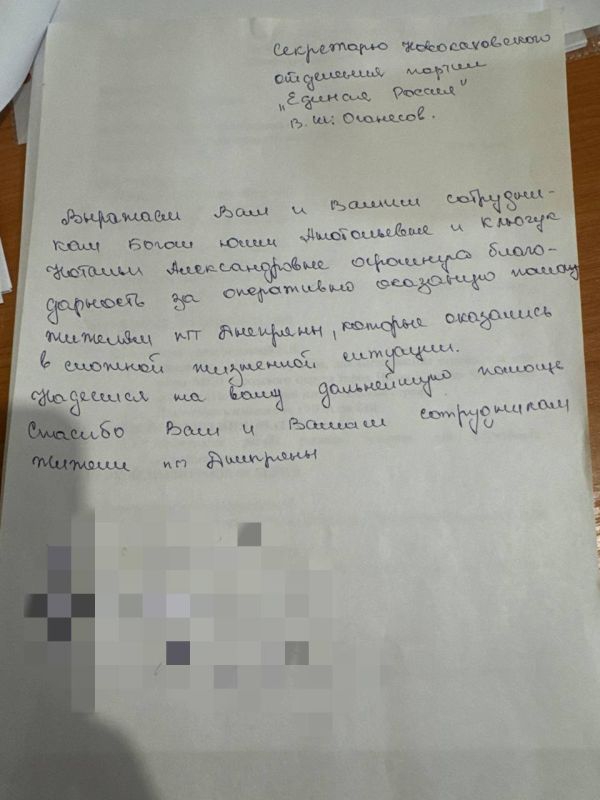 Секретарю Новокаховского
отделения партии
„Единая Россия"
В. Ш. Оганесов.
Выражаем Вам и Вашим сотрудни-
кам Богаш Юлии Анатольевне и Клюгук
Натальи Александровне огромную благо-
дарность за оперативно оказаную помощ
жителям пгт Днепряны, которые оказались
в сложной жизненной ситуации.
Надеемся на вашу дальнейшую помощь
Спасибо Вам и Вашим сотрудникам
жители пгт Днепряны